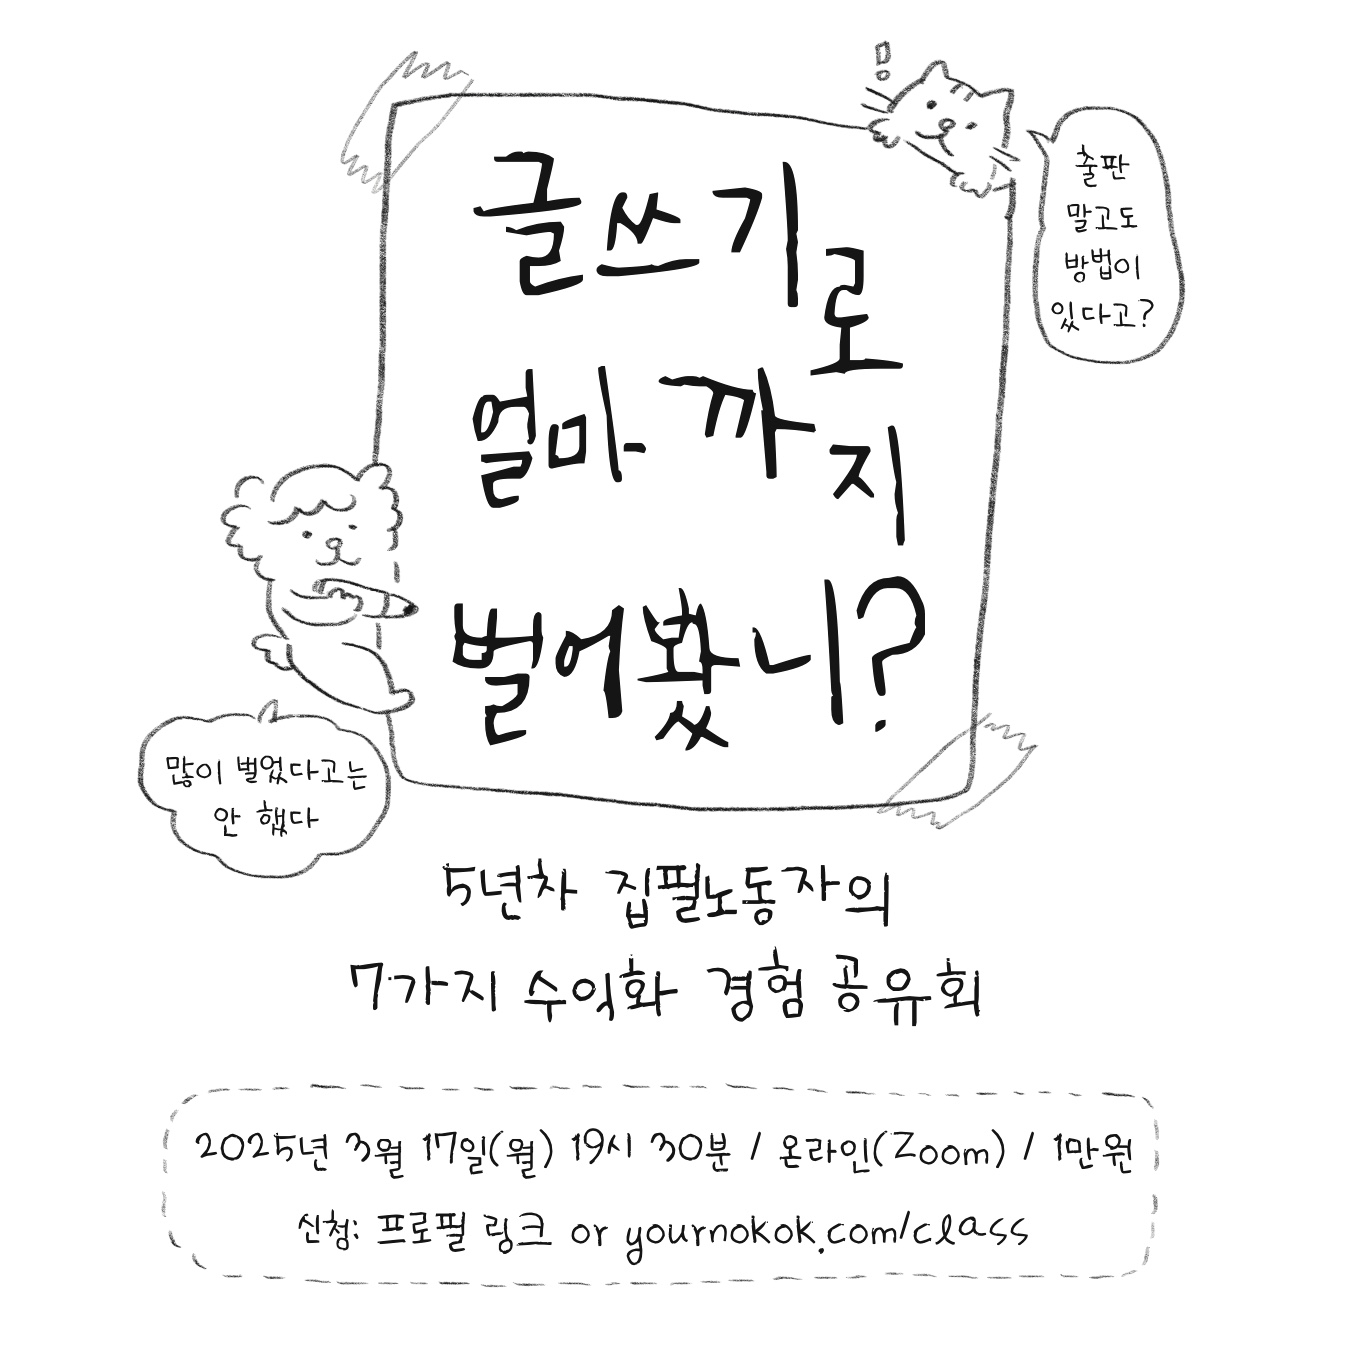 글쓰기로
얼마까지
벌어봤니?
출판
말고도
방법이
있다고?
많이 벌었다고는
안 했다
5년차 집필노동자의
7가지 수익화 경험 공유회
2025년 3월 17일(월) 19시 30분 / 온라인(Zoom) / 1만원
신청: 프로필 링크 or yournokok.com/class